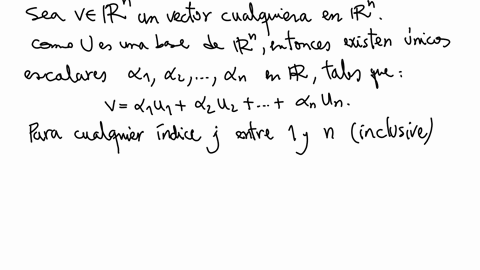 Sea v∈ℝⁿ un vector cualquiera en ℝⁿ.
como U es una base de ℝⁿ, entonces existen únicos
escalares α₁, α₂, ..., αₙ en ℝ, tales que:
v = α₁u₁ + α₂u₂ + ... + αₙuₙ.
Para cualquier índice j entre 1 y n (inclusive)